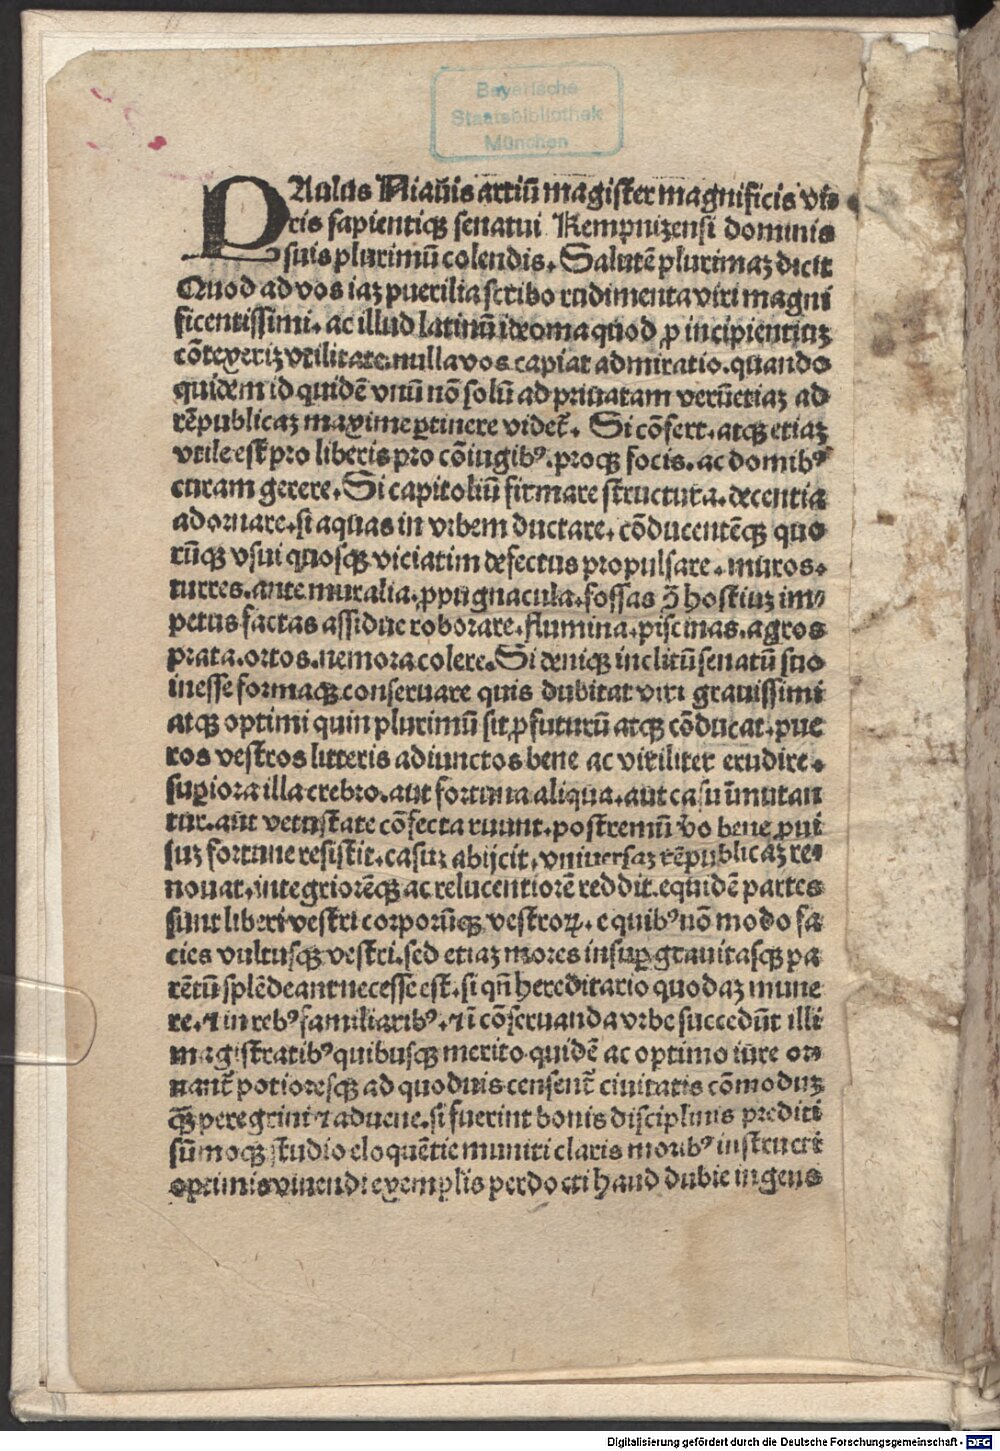 Bayerische
Staatsbibliothek
München
PAulus Niauis artiũ magister magnificis vi⸗
ris sapientiqꝫ senatui Kempnizensi dominis
suis plurimũ colendis. Salutẽ plurimaꝫ dicit
Quod ad vos iaꝫ puerilia scribo rudimenta viri magni
ficentissimi. ac illud latinũ ideoma quod ꝓ incipientiuꝫ
cõtexeriꝫ vtilitate. nulla vos capiat admiratio. quando
quidem id quidẽ vnũ nõ solũ ad priuatam verũetiaꝫ ad
rẽpublicaꝫ maxime ꝑtinere videt̃. Si cõfert. atqꝫ etiaꝫ
vtile est pro liberis pro cõiugibꝰ. proqꝫ focis. ac domibꝰ
curam gerere. Si capitoliũ firmare structura. decentia
adornare. si aquas in vrbem ductare. cõducentẽqꝫ quo
rũqꝫ vsui quosqꝫ viciatim defectus propulsare. muros.
turres. ante muralia. ꝓpugnacula. fossas ꝯ̃ hostiuꝫ im⸗
petus factas assidue roborare. flumina. piscinas. agros
prata. ortos. nemora colere. Si deniqꝫ inclitũ senatũ suo
inesse formaqꝫ conseruare quis dubitat viri grauissimi
atqꝫ optimi quin plurimũ sit ꝓfuturũ atqꝫ cõducat. pue
ros vestros litteris adiunctos bene ac viriliter erudire.
supiora illa crebro. aut fortuna aliqua. aut casu ĩmutan
tur. aut vetustate cõfecta ruunt. postremũ v̾o bene ꝓui
suꝫ fortune resistit. casuꝫ abijcit. vniuersaꝫ rẽpublicaꝫ re⸗
nouat. integriorẽqꝫ ac relucentiorẽ reddit. equidẽ partes
sunt liberi vestri corporũqꝫ vestroꝝ. e quibꝰ nõ modo fa
cies vultusqꝫ vestri. sed etiaꝫ mores insuꝑ grauitasqꝫ pa
rẽtũ splẽdeant necesse est. si qñ hereditario quodaꝫ mune
re. ⁊ in rebꝰ familiaribꝰ. ⁊ ĩ cõseruanda vrbe succedũt illi
magistratibꝰ quibusqꝫ merito quidẽ ac optimo iure or⸗
nant̃ potioresqꝫ ad quoduis censent̃ ciuitatis cõmoduꝫ
qꝫ̃ peregrini ⁊ aduene. si fuerint bonis disciplinis prediti
sũmoqꝫ studio eloquẽtie muniti claris moribꝰ instructi
optimis viuendi exemplis perdocti haud dubie ingens
Digitalisierung gefördert durch die Deutsche Forschungsgemeinschaft - DFG